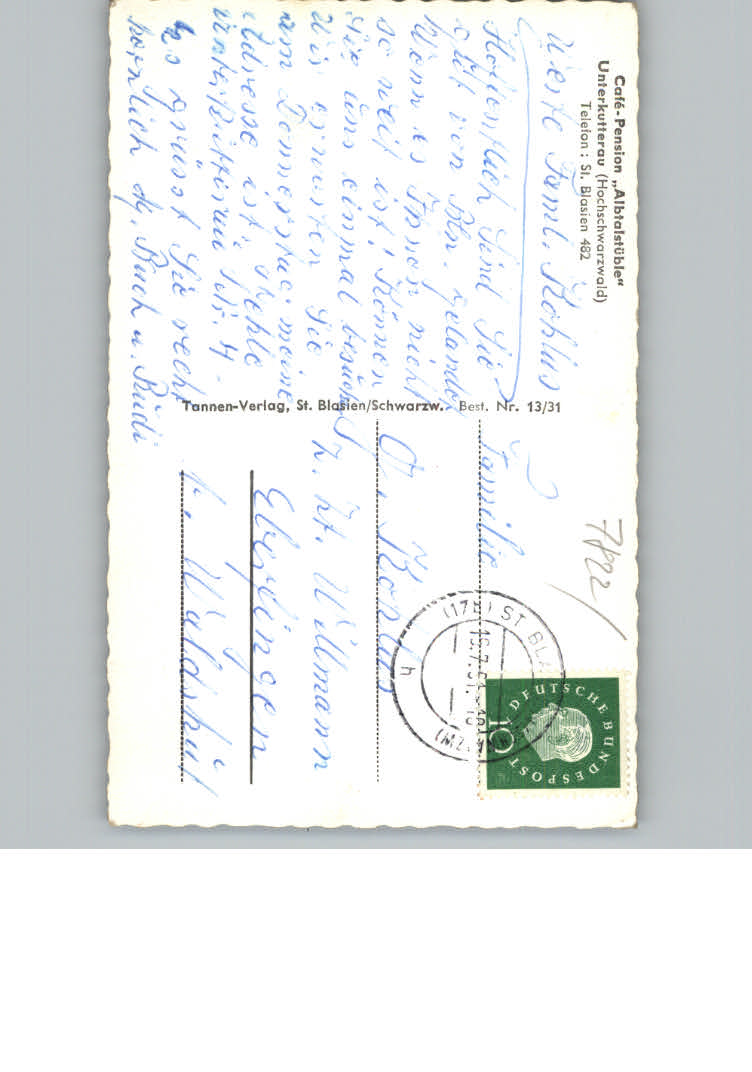 Café-Pension „Albtalstüble“
Unterkutterau (Hochschwarzwald)
Telefon: St. Blasien 482
Werte Faml. Kohlus
Hoffentlich Sind Sie
gut von Bln. gelandet
Wenn es Ihnen nicht
so weit ist, Kömen
Sie uns einmal besuchen
Wir erwarten Sie
am Donnerstag. meine
Adresse ist
Nr. 4.
Es grüsst Sie recht
herzlich Buch u. Rudi
Tannen-Verlag, St. Blasien/Schwarzw. Best. Nr. 13/31
Familie
O. Kohlus
z. Zt. Willmann
b. Waldshut
7822
(17b) ST. BLASIEN
h
DEUTSCHE BUNDESPOST
10